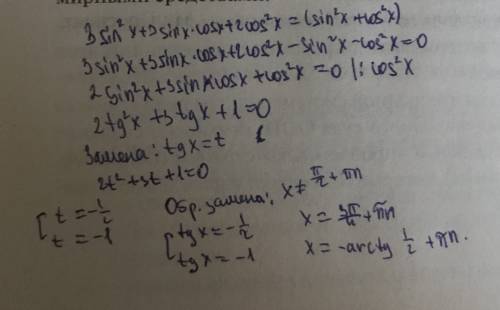 мирными средствами.
3sin²x+3sinx·cosx+2cos²x=(sin²x+cos²x)
3sin²x+3sinx·cosx+2cos²x-sin²x-cos²x=0
2sin²x+3sinxcosx+cos²x=0 |:cos²x
2tg²x+3tgx+1=0
Замена: tgx=t
2t²+3t+1=0
[t=-1/2
t=-1
Обр. замена: x≠π/2+πn
[tgx=-1/2
tgx=-1
x=3π/4+πn
x=-arctg 1/2+πn.